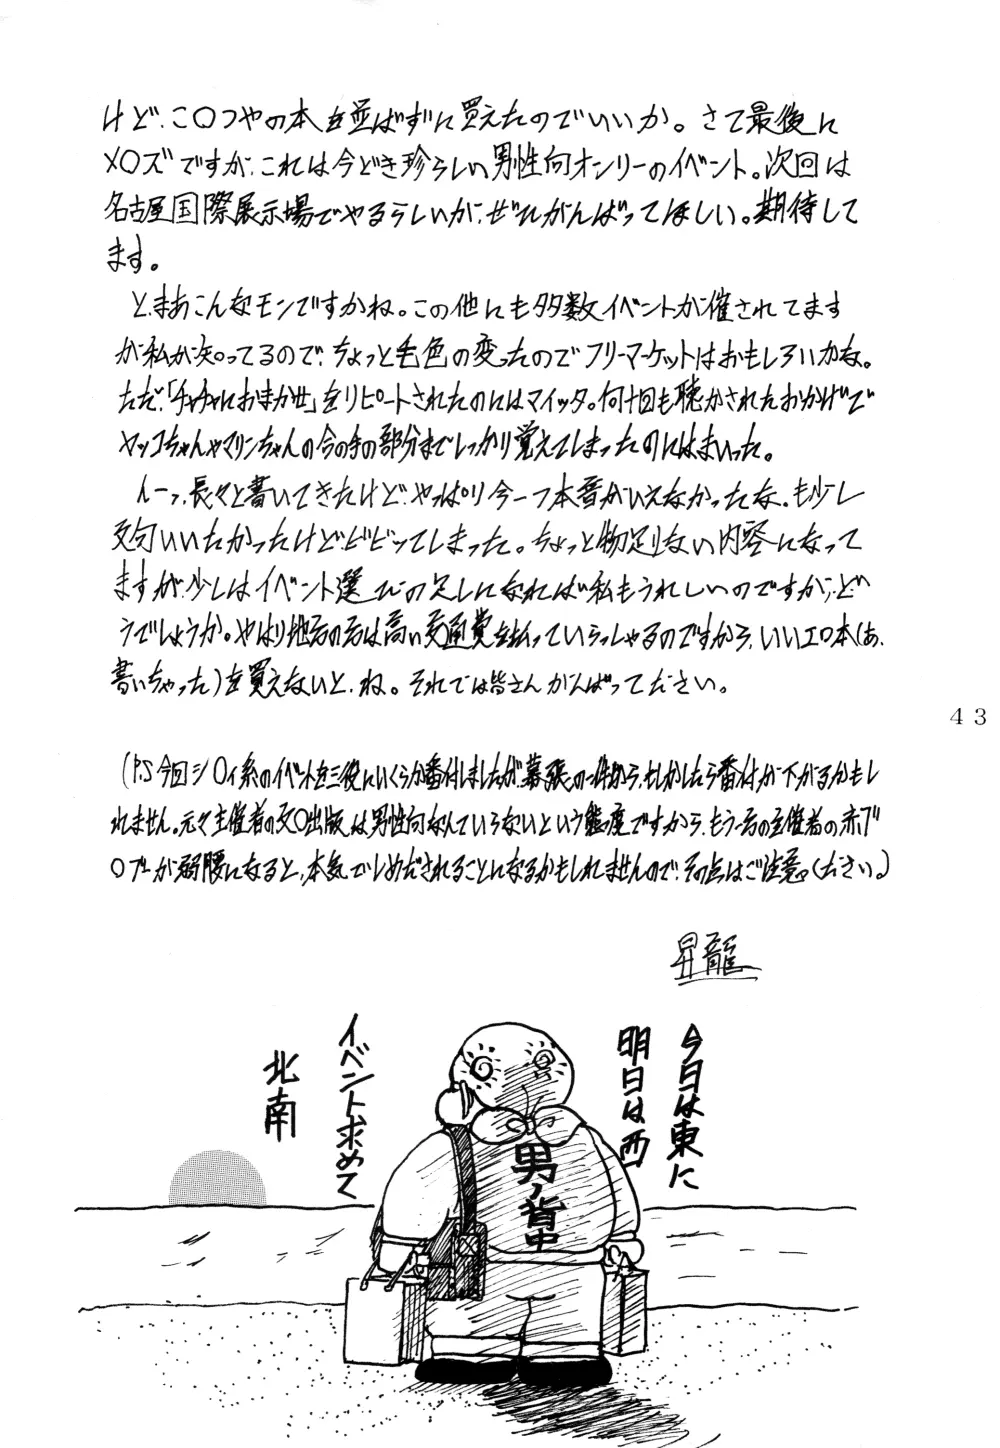 けど、こ〇つやの本を並ばずに買えたのでいいか。さて最後に
メ〇ズですが、これは今どき珍らしい男性向オンリーのイベント。次回は
名古屋国際展示場でやるらしいが、ぜひがんばってほしい。期待して
ます。
と、まあこんなモンですかね。この他にも多数イベントが催されてます
が私が知ってるので、ちょっと毛色の変ったのでフリーマーケットはおもしろいかな。
ただ、「チャチャにおまかせ」をリピートされたのにはマイッタ。何十回も聴かされたおかげで
ヤッコちゃんやマリンちゃんの合の手の部分までしっかり覚えてしまったのにはまいった。
んーっ、長々と書いてきたけど、やっぱり今一つ本音がいえなかったな。も少し
文句いいたかったけどビビッてしまった。ちょっと物足りない内容になって
ますが、少しはイベント選びの足しになれば私もうれしいのですが、ど
うでしょうか。やはり地方の方は高い交通費を払っていらっしゃるのですから、いいエロ本(あ、
書いちゃった)を買えないと、ね。それでは皆さんがんばってください。
(P.S 今回シ〇ィ系のイベントを三役にいくらか番付しましたが、幕張の一件から、もしかしたら番付が下がるかもし
れません。元々主催者の文〇出版は男性向なんていらないという態度ですから、もう一方の主催者の赤ブ
〇ブーが弱腰になると、本気でしめだされることになるかもしれませんので、その点はご注意ください。)
昇龍
今日は東に
明日は西
イベント求めて
北南
男ノ背中
43